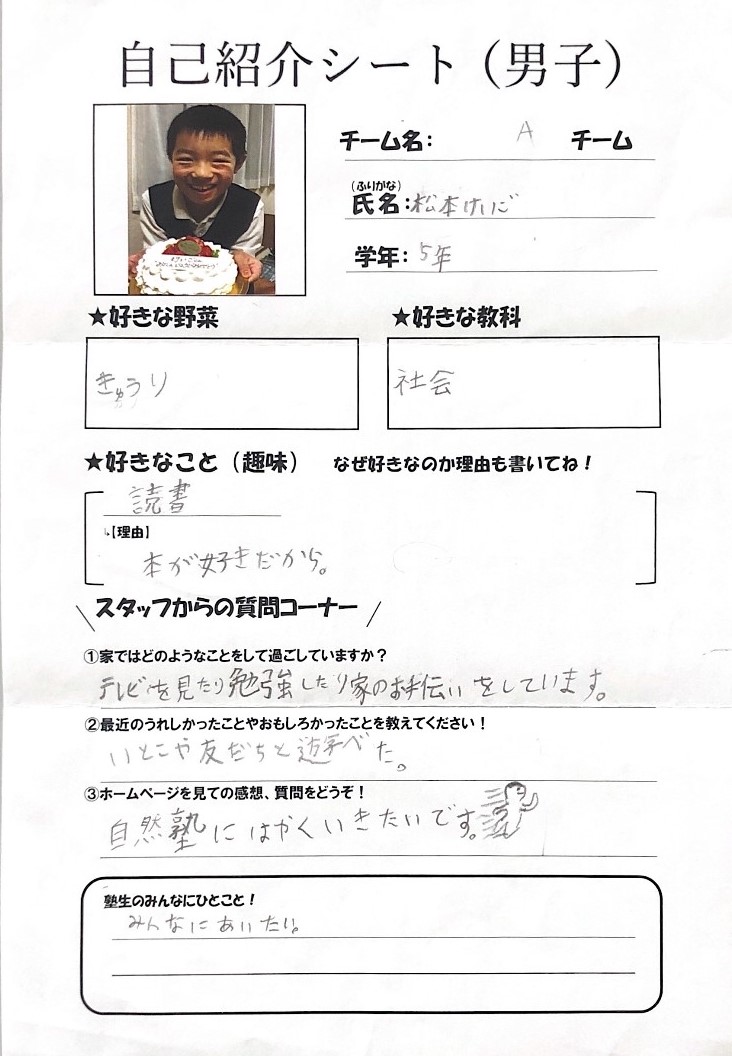 自己紹介シート（男子）
チーム名： A チーム
（ふりがな）
氏名：松本けいご
学年：5年
★好きな野菜
★好きな教科
きゅうり
社会
★好きなこと（趣味） なぜ好きなのか理由も書いてね！
読書
↳【理由】
本が好きだから。
スタッフからの質問コーナー
①家ではどのようなことをして過ごしていますか？
テレビを見たり勉強したり家のお手伝いをしています。
②最近のうれしかったことやおもしろかったことを教えてください！
いとこや友だちと遊べた。
③ホームページを見ての感想、質問をどうぞ！
自然塾にはやくいきたいです。
塾生のみんなにひとこと！
みんなにあいたい。